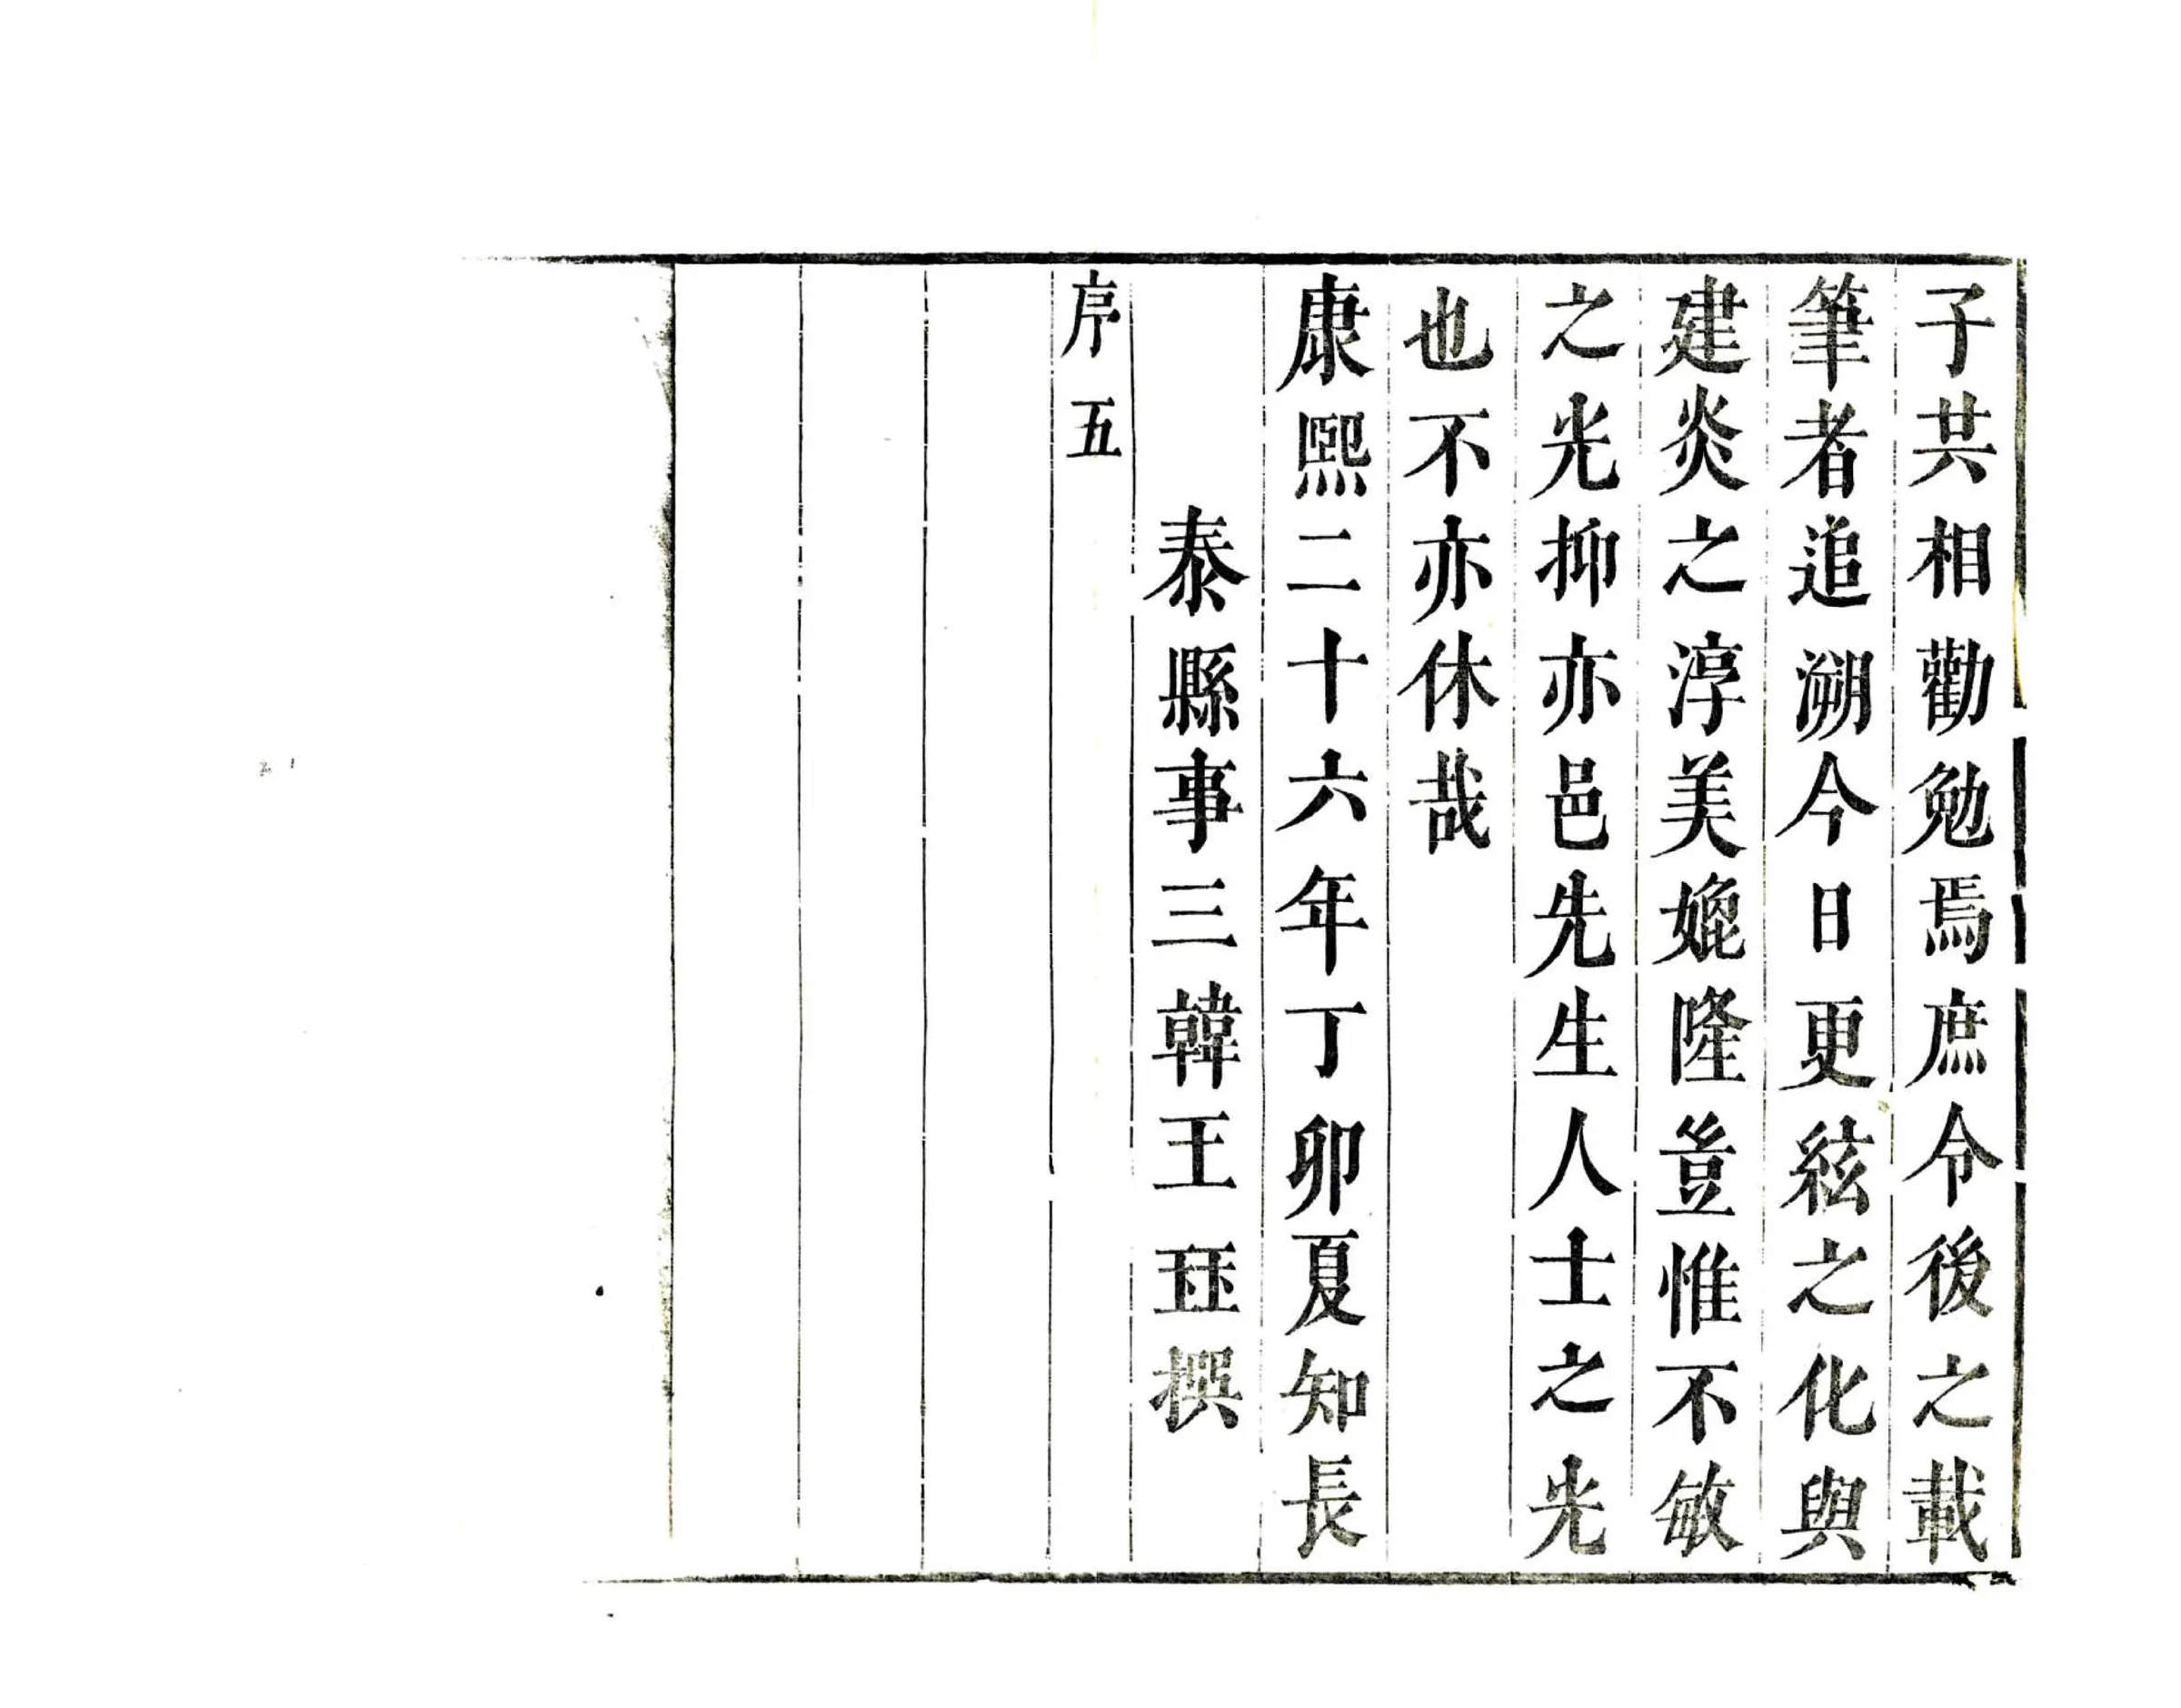 子共相勸勉焉庶令後之載
筆者追溯今日更絃之化與
建炎之淳美媲隆豈惟不敏
之光抑亦邑先生人士之光
也不亦休哉
康熙二十六年丁卯夏知長
泰縣事三韓王珏撰
序五